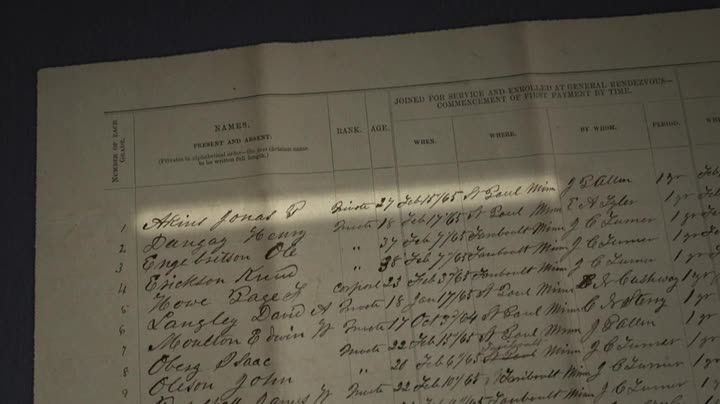 JOINED FOR SERVICE AND ENROLLED AT GENERAL RENDEZVOUS—
COMMENCEMENT OF FIRST PAYMENT BY TIME.
NUMBER OF EACH GRADE.
NAMES,
PRESENT AND ABSENT.
(Privates in alphabetical order—the first christian name to be written full length.)
RANK. AGE. WHEN. WHERE. BY WHOM. PERIOD.
1 Akins Jonas P Private 27 Feb 15/65 St Paul Minn J P Allen 1 yr
2 Dangay Henry Private 18 Feb 17/65 St Paul Minn E A Tyler 1 yr
3 Engebritson Ole " 37 Feb 7/65 Faribault Minn J C Turner 1 yr
4 Erickson Knud " 38 Feb 7/65 Faribault Minn J C Turner 1 yr
5 Howe Page S Corporal 23 Feb 3/65 Faribault Minn J C Turner 1 yr
6 Langley David A Private 18 Jan 17/65 St Paul Minn 1 yr
7 Moulton Edwin W Private 17 Oct 3/64 St Paul Minn 1 yr
8 Oberg Isaac Private 22 Feb 15/65 St Paul Minn J P Allen 1 yr
9 Oleson John " 20 Feb 6/65 Faribault Minn J C Turner 1 yr
James W Private 22 Feb 10/65 Faribault Minn J C Turner 1 yr